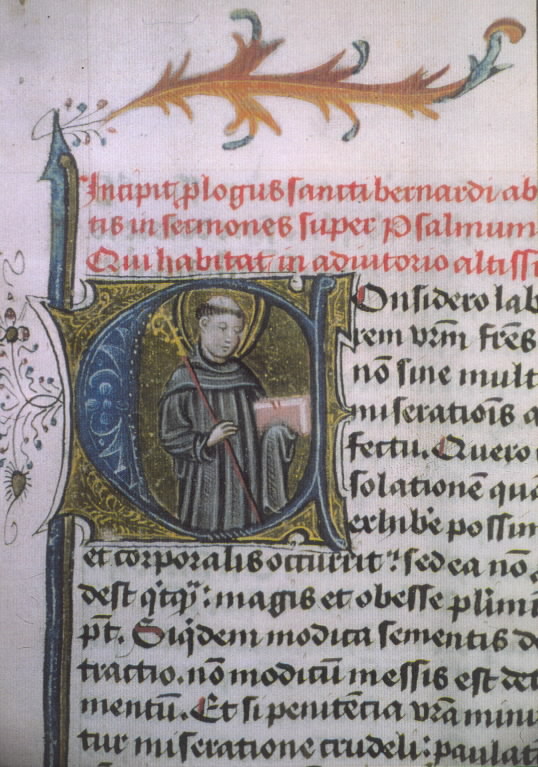 Incipit plogus sancti bernardi ab
tis in sermones super Psalmum
Qui habitat in adiutorio altissi
Onsidero lab
rem vrm̄ frēs
nō sine mult
miseratiōis a
fectu. Quero
solationē quā
exhibe possim
et corporalis occurrit: sed ea nō
dest q̄tq̄: magis et obesse plīm
pt̄. Siq̄dem modica sementis de
tractio. nō modicū messis est det
mentū. Et si penitēcia vrā minu
tur miseratione crudeli: paulat